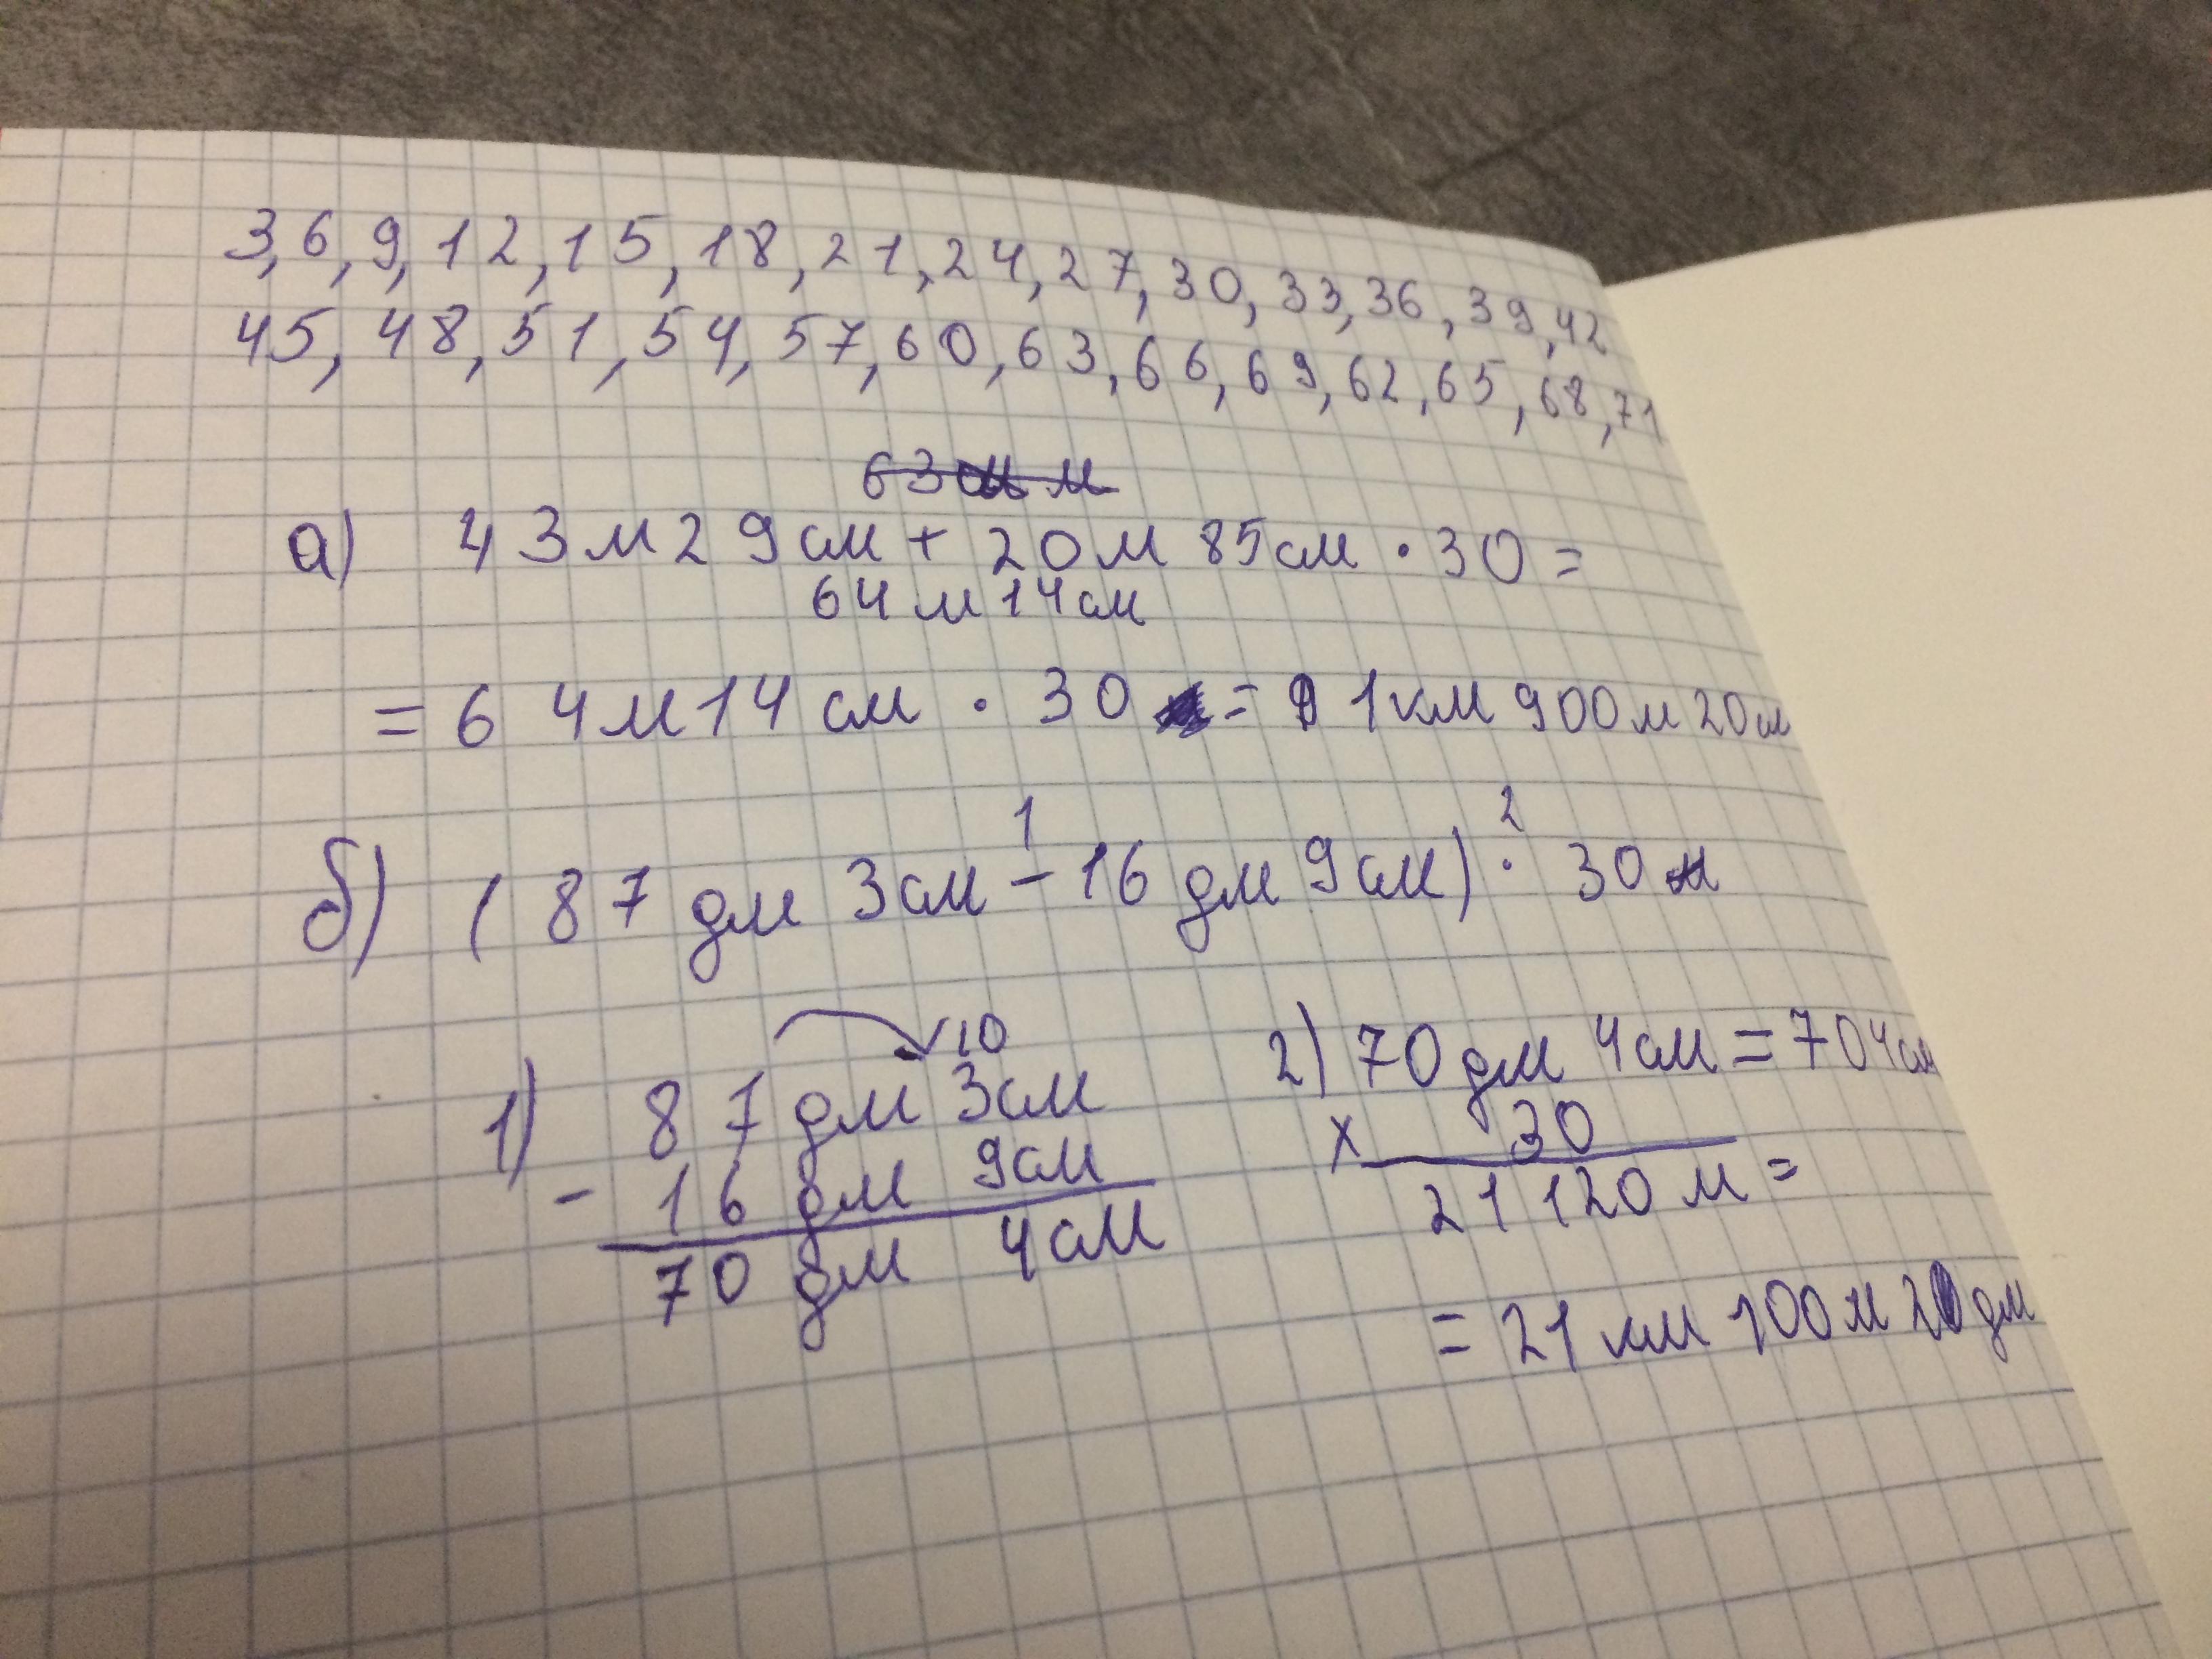 3, 6, 9, 12, 15, 18, 21, 24, 27, 30, 33, 36, 39, 42
45, 48, 51, 54, 57, 60, 63, 66, 69, 62, 65, 68, 71
63 м
а) 43м29см + 20м 85см · 30 =
64м14см
= 64м14см · 30 = 1км 900м 20см
1 2
б) (87 дм 3см - 16 дм 9см) · 30м
10
1) 87 дм 3см
- 16 дм 9см
70 дм 4см
2) 70 дм 4см = 704см
х 30
21120 м =
= 21км 100м 20дм